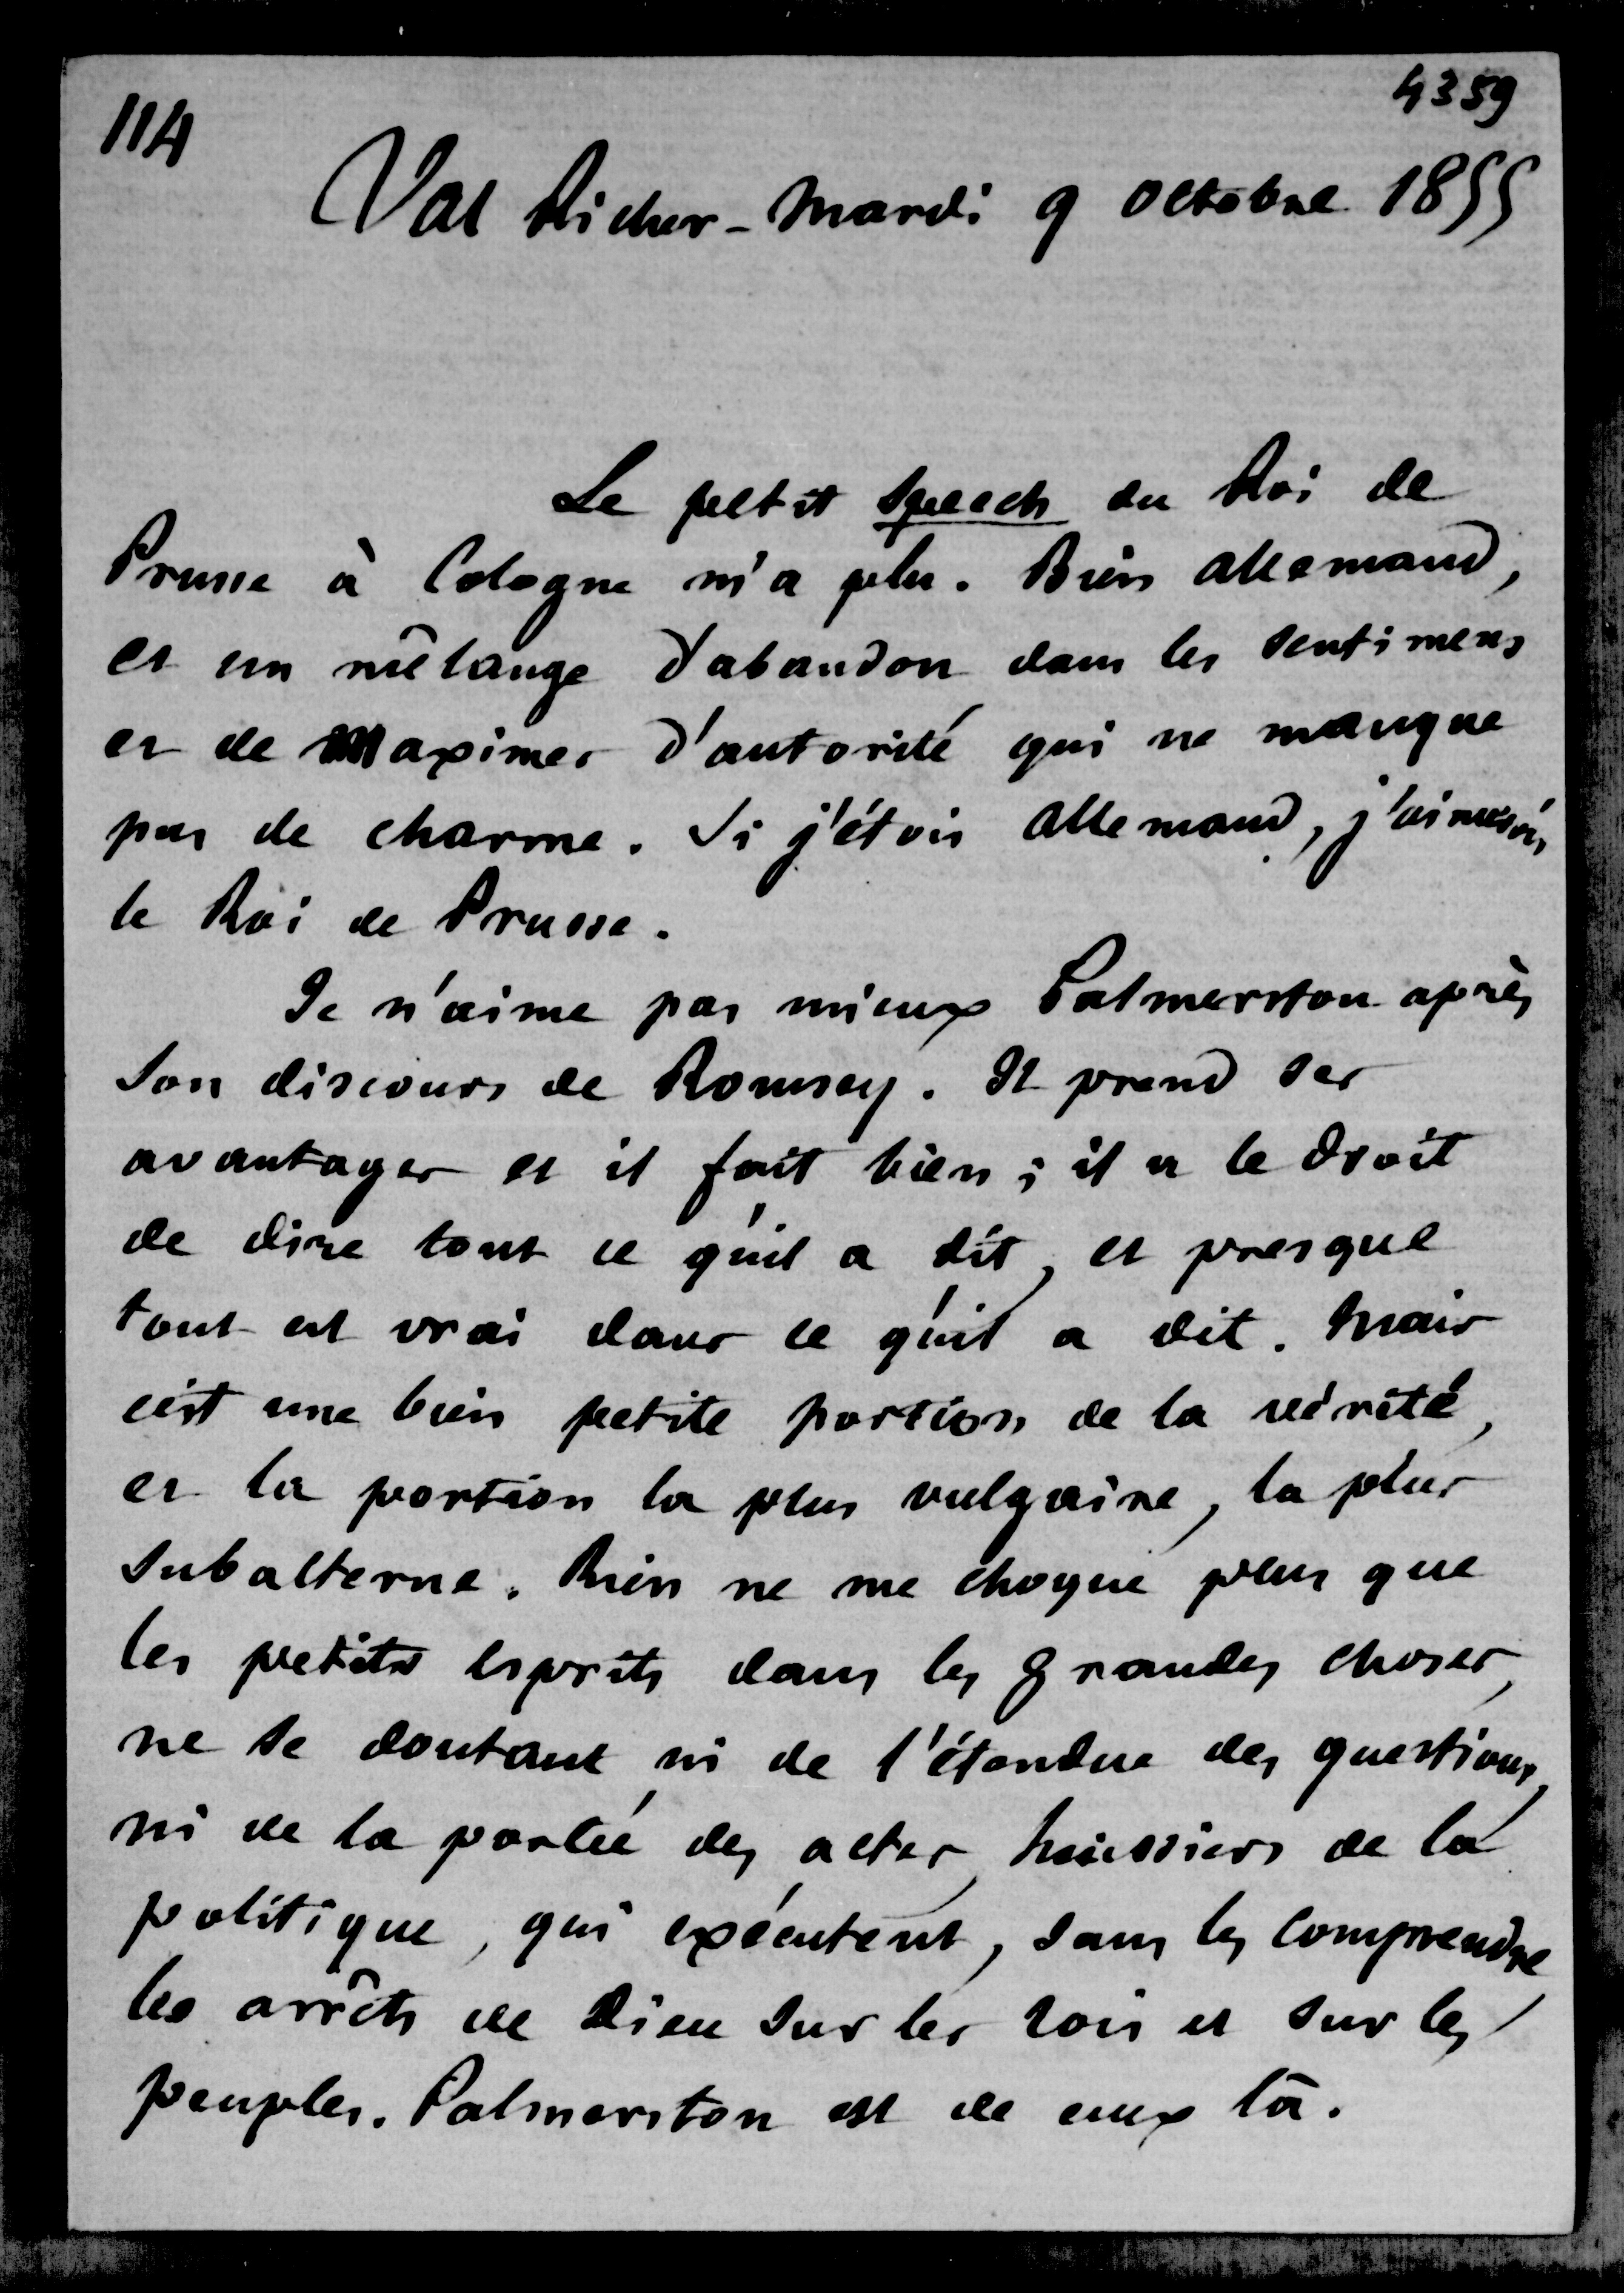 4359
114
Val Richer - Mardi 9 octobre 1855
Le petit speech du Roi de
Prusse à Cologne m'a plu. Bien allemand,
et un mélange d'abandon dans les sentimens
et de maximes d'autorité qui ne manque
pas de charme. Si j'étois allemand, j'aimerois
le Roi de Prusse.
Je n'aime pas mieux Palmerston après
son discours de Romsey. Il prend ses
avantages et il fait bien ; il a le droit
de dire tout ce qu'il a dit, et presque
tout est vrai dans ce qu'il a dit. Mais
c'est une bien petite portion de la vérité,
et la portion la plus vulgaire, la plus
subalterne. Rien ne me choque plus que
les petits esprits dans les grandes choses,
ne se doutant ni de l'étendue des questions,
ni de la portée des actes, huissiers de la
politique, qui exécutent, sans les comprendre,
les arrêts de Dieu sur les rois et sur les
peuples. Palmerston est de ceux là.